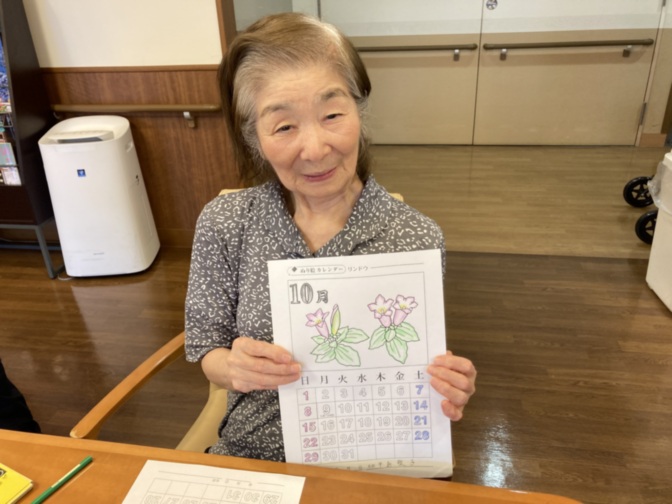 ぬり絵カレンダー リンドウ
10月
日 月 火 水 木 金 土
1 2 3 4 5 6 7
8 9 10 11 12 13 14
15 16 17 18 19 20 21
22 23 24 25 26 27 28
29 30 31